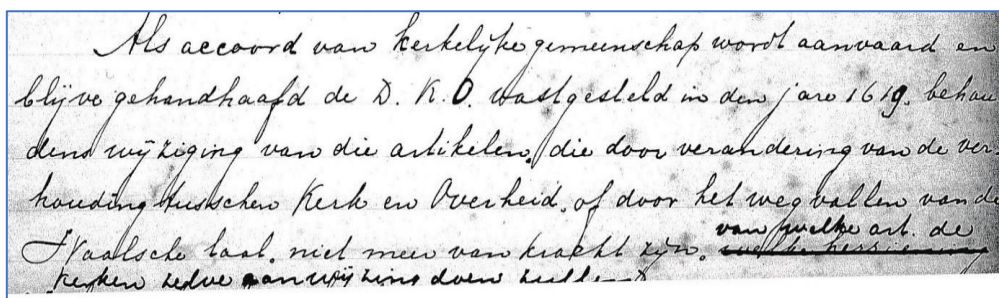 Als accoord van kerkelijke gemeenschap wordt aanvaard en
blijve gehandhaafd de D. K. O. vastgesteld in den jare 1619, behou
dens wijziging van die artikelen, die door verandering van de ver-
houding tusschen Kerk en Overheid, of door het wegvallen van de
Waalsche taal, niet meer van kracht zijn, van welke art. de
Kerken zelve aanwijzing doen zullen